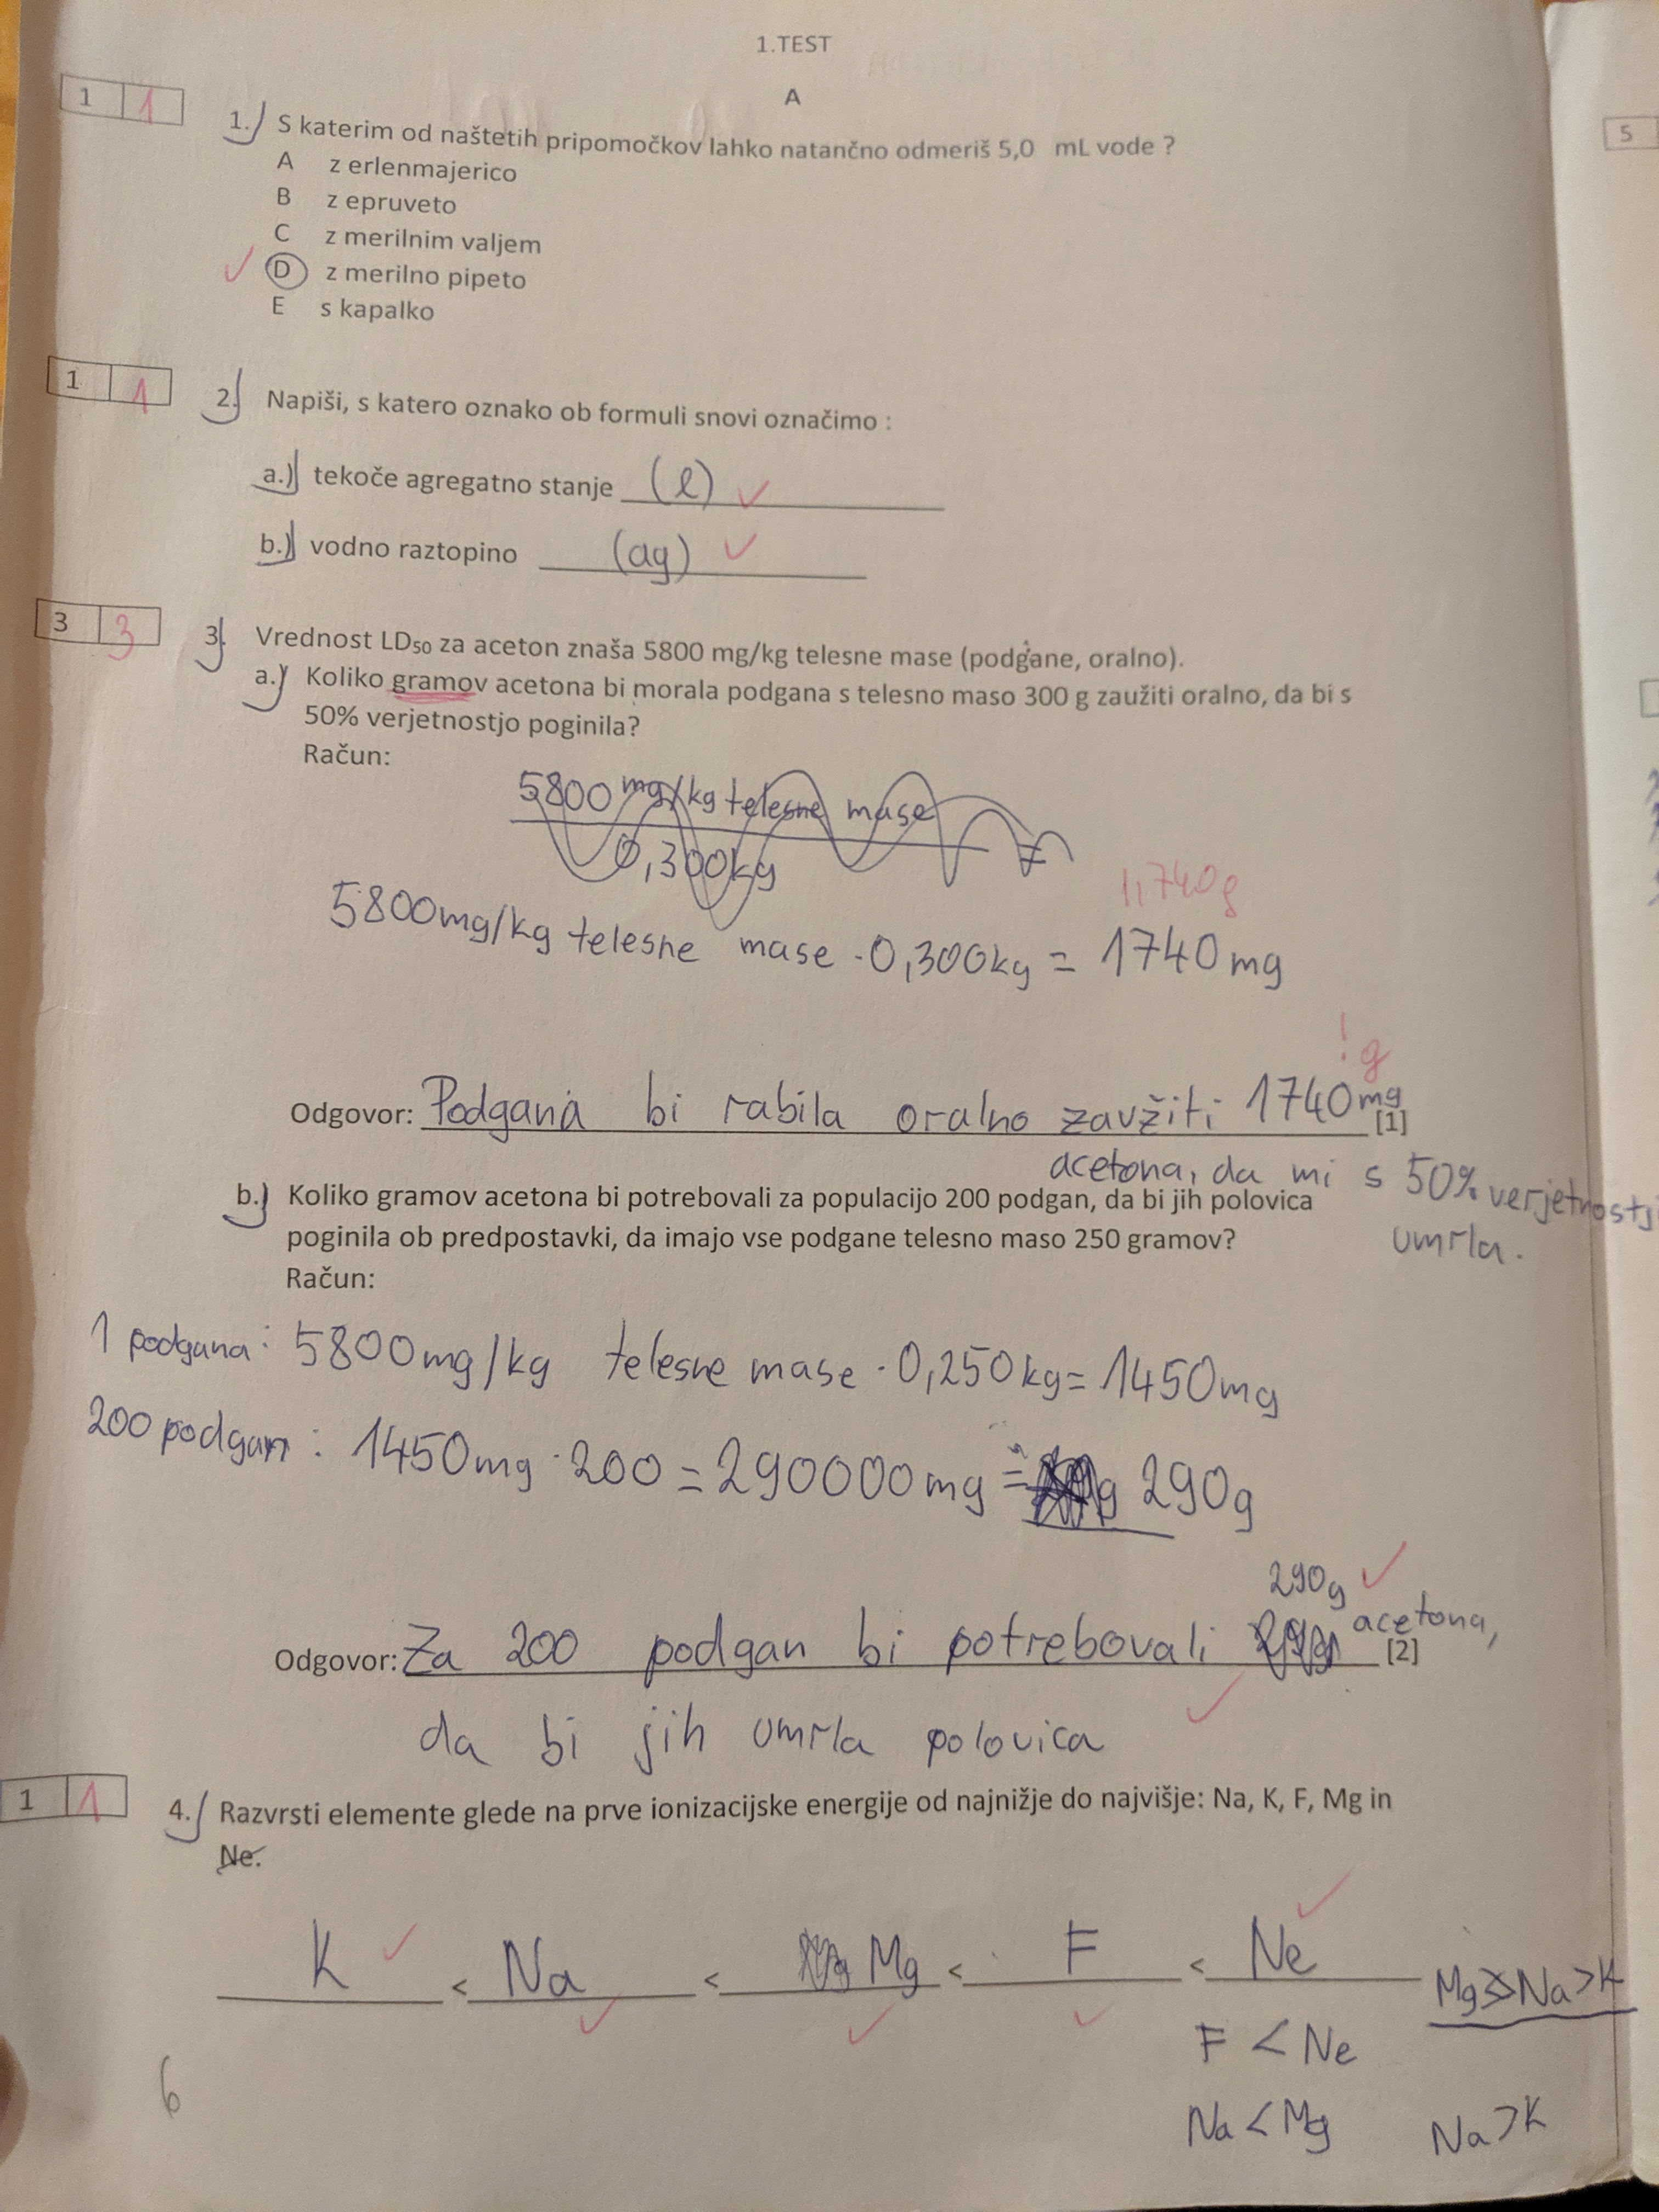 1.TEST
A
1 1
1.) S katerim od naštetih pripomočkov lahko natančno odmeriš 5,0 mL vode ?
A z erlenmajerico
B z epruveto
C z merilnim valjem
D z merilno pipeto
E s kapalko
5
1 1
2.) Napiši, s katero oznako ob formuli snovi označimo :
a.) tekoče agregatno stanje (l)
b.) vodno raztopino (ag)
3 3
3. Vrednost LD50 za aceton znaša 5800 mg/kg telesne mase (podgane, oralno).
a.) Koliko gramov acetona bi morala podgana s telesno maso 300 g zaužiti oralno, da bi s
50% verjetnostjo poginila?
Račun:
5800 mg/kg telesne mase
0,300kg =
1,740g
5800mg/kg telesne mase · 0,300kg = 1740 mg
! g
Odgovor: Podgana bi rabila oralno zavžiti 1740 mg
[1]
acetona, da mi s 50% verjetnostj
umrla.
b.) Koliko gramov acetona bi potrebovali za populacijo 200 podgan, da bi jih polovica
poginila ob predpostavki, da imajo vse podgane telesno maso 250 gramov?
Račun:
1 podgana: 5800mg/kg telesne mase · 0,250kg = 1450mg
200 podgan: 1450mg · 200 = 290000mg = 290g
290g
Odgovor: Za 200 podgan bi potrebovali acetona,
[2]
da bi jih umrla polovica
1 1
4. Razvrsti elemente glede na prve ionizacijske energije od najnižje do najvišje: Na, K, F, Mg in
Ne.
K < Na < Mg < F < Ne
Mg > Na > K
F < Ne
Na < Mg Na > K
6